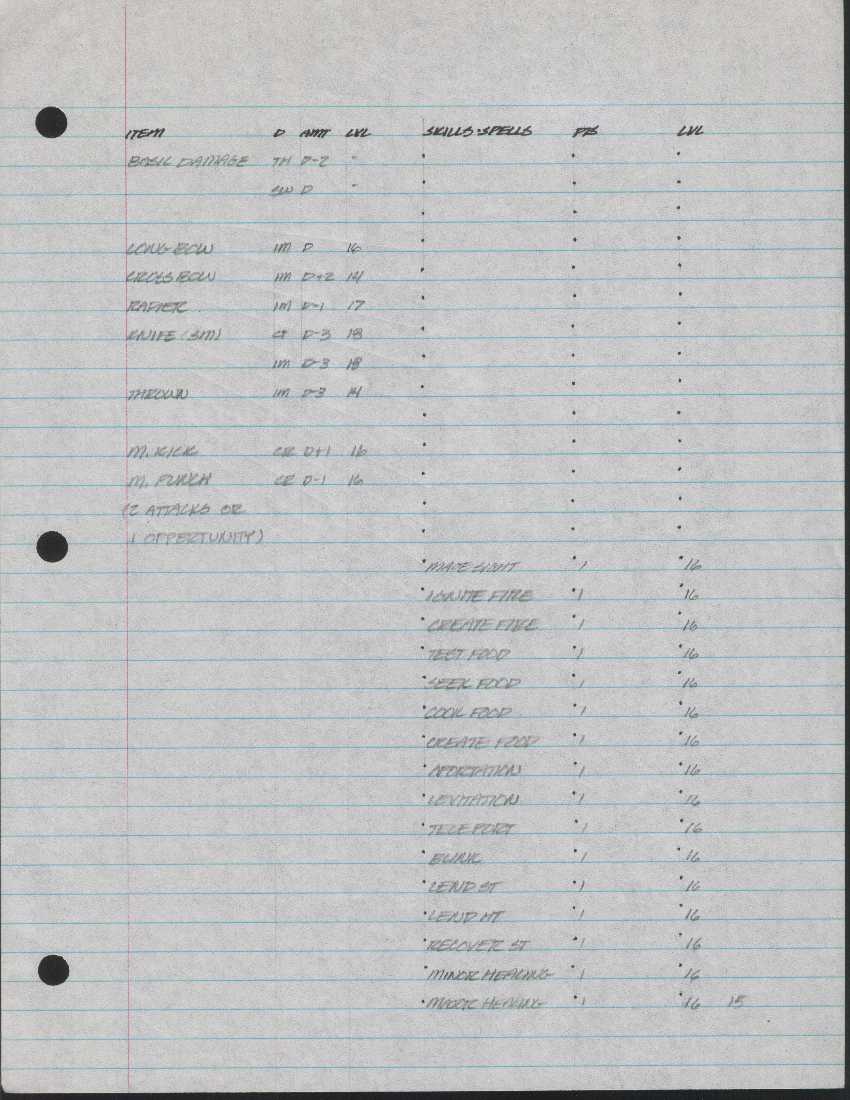 ITEM D AMT LVL SKILLS·SPELLS PTS LVL
BASIC DAMAGE TH D-2 -
SW D -
LONG BOW IM D 16
CROSS BOW IM D+2 14
RAPIER IM D-1 17
KNIFE (SM) CT D-3 18
IM D-3 18
THROWN IM D-3 14
M. KICK CR D+1 16
M. PUNCH CR D-1 16
(2 ATTACKS OR
1 OPPERTUNITY)
• MAKE LIGHT • 1 • 16
• IGNITE FIRE • 1 • 16
• CREATE FIRE • 1 • 16
• TEST FOOD • 1 • 16
• SEEK FOOD • 1 • 16
• COOK FOOD • 1 • 16
• CREATE FOOD • 1 • 16
• APORTATION • 1 • 16
• LEVITATION • 1 • 16
• TELEPORT • 1 • 16
• BLINK • 1 • 16
• LEND ST • 1 • 16
• LEND HT • 1 • 16
• RECOVER ST • 1 • 16
• MINOR HEALING • 1 • 16
• MAJOR HEALING • 1 • 16 15